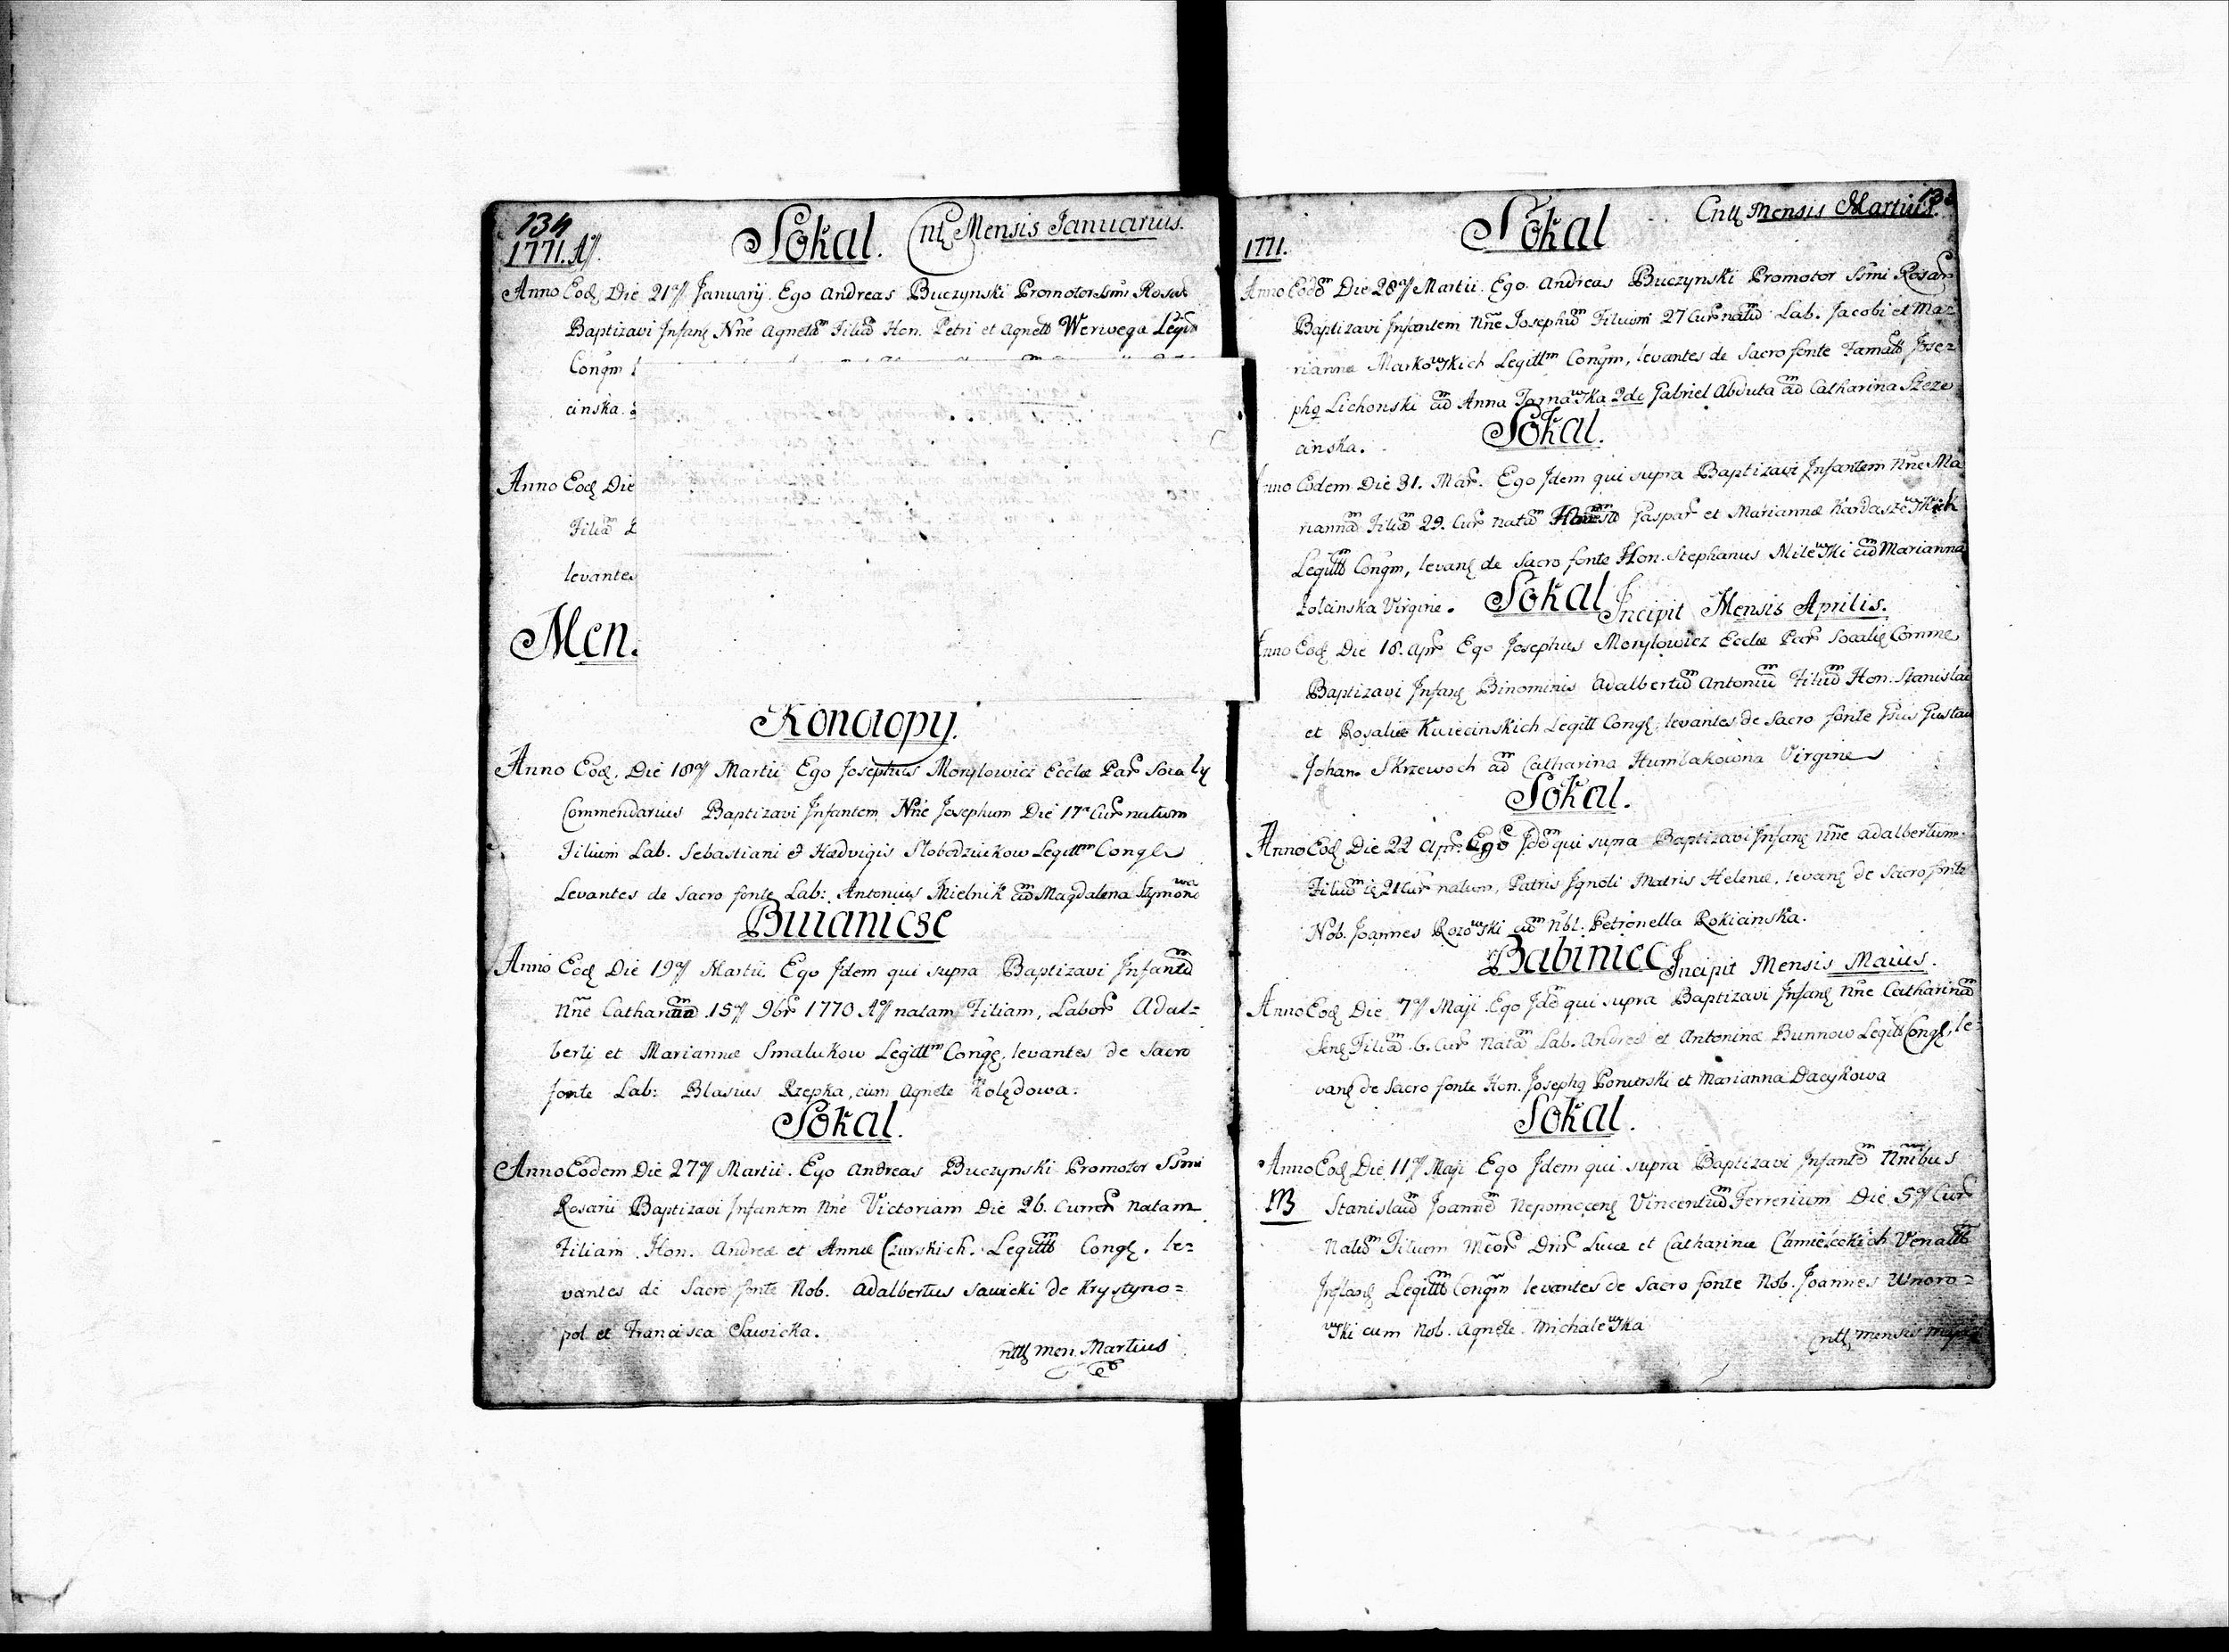 134
1771. Aõ.
Sokal. Cntę Mensis Januarius.
Anno Eodę Die 21ª January. Ego Andreas Buczynski Promotor Ssmi Rosar
Baptizavi Infanę Nñe Agnetam Filiam Hon. Petri et Agnetis Werwega Legitt
Congm
cinska.
Anno Eodę Die
Filiam
levantes
Men.
Konotopy.
Anno Eodę. Die 18ª Martii Ego Josephus Monylowicz Eccle Par Socaly
Commendarius Baptizavi Infantem Nñe Josephum Die 17ª Cur natum
Filium Lab. Sebastiani & Hædvigis Slobodziukow Legittm Congę
Levantes de Sacro fonte Lab: Antonius Mielnik cum Magdalena Szymonowa
Buianicse
Anno Eodę Die 19ª Martii. Ego Idem qui supra Baptizavi Infantem
Nñe Catharinam 15ª 9br 1770 Aõ natam Filiam, Labor Adal=
berti et Mariannæ Smalukow Legittm Congę, levantes de Sacro
fonte Lab: Blasius Rzepka, cum Agnete Kolędowa.
Sokal.
Anno Eodem Die 27ª Martii. Ego Andreas Buczynski Promotor Ssmi
Rosarii Baptizavi Infantem Nñe Victoriam Die 26. Curren natam
Filiam Hon. Andreæ et Annæ Czurskich. Legittm Congę. le=
vantes de Sacro fonte Nob. Adalbertus Sawicki de Krystyno=
pol et Francisca Sawicka.
Mensis Martius
1771.
Sokal Cntę Mensis Martius.
Anno Eodem Die 28ª Martii. Ego Andreas Buczynski Promotor Ssmi Rosar
Baptizavi Infantem Nñe Josephum Filium 27 Cur natum Lab. Jacobi et Ma=
riannæ Markowskich Legittm Congm, levantes de Sacro fonte Famatus Jose=
phq Lichonski cum Anna Tarnawska 2do Gabriel Abduta cum Catharina Szcze
cinska.
Sokal.
Anno Eodem Die 31. Mar. Ego Idem qui supra Baptizavi Infantem Nñe Ma
riannam Filiam 29. Cur natam Gaspar et Mariannæ Kardaszewskich
Legittm Congm, levanę de Sacro fonte Hon. Stephanus Milewski cum Marianna
Zolcinska Virgine. Sokal Incipit Mensis Aprilis.
Anno Eodę Die 18. Apr Ego Josephus Monylowicz Eccle Par Socalię Comme
Baptizavi Infanę Binominis Adalbertum Antonium Filium Hon. Stanislai
et Rosaliæ Kwiecinskich Legitt Congę, levantes de Sacro fonte Gustav
Johan Skrzewoch cum Catharina Humlakowna Virgine
Sokal.
Anno Eodę Die 22 Apr. Ego Idem qui supra Baptizavi Infanę Nñe Adalbertum
Filium 21 Cur natum, Patris Ignoti Matris Helenæ, levanę de Sacro fonte
Nob. Joannes Rozowski cum Nbl. Petronella Rokicinska.
Babiniec Incipit Mensis Maius.
Anno Eodę Die 7ª Maji Ego Idem qui supra Baptizavi Infanę Nñe Catharinam
Senę Filiam 6. Cur Natam Lab. Andreæ et Antoninæ Bunnow Legitt Congę, le=
vanę de Sacro fonte Hon. Josephq Ponurski et Marianna Dacykowa
Sokal.
Anno Eodę Die 11ª Maji Ego Idem qui supra Baptizavi Infantem Nñibus
Stanislaum Joannem Nepomocenę Vincentium Ferrerium Die 5ª Cur
Natum Filium Lucæ et Catharinæ
Legittm Congm levantes de Sacro fonte Nob. Joannes Unoro=
wski cum Nob. Agnete Michalewska
Mensis